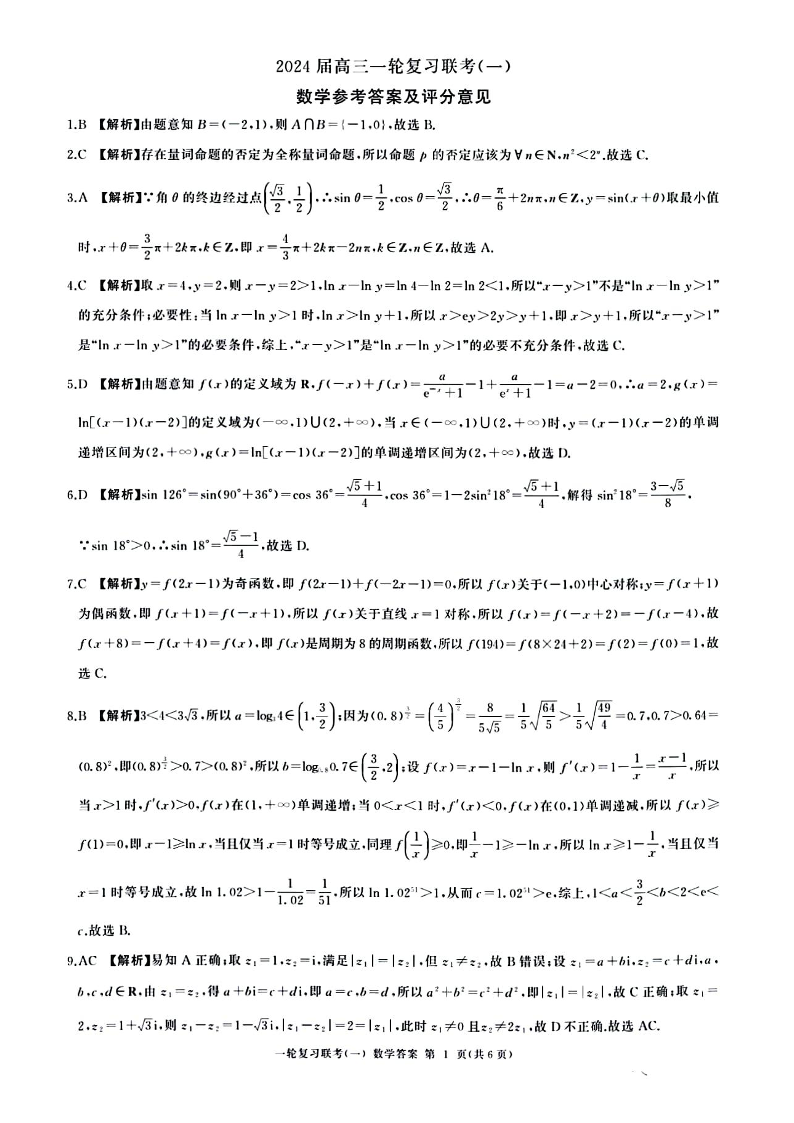 2024 届高三一轮复习联考(一)
数学参考答案及评分意见
1.B 【解析】由题意知 B=(-2,1),则 A∩B={-1,0},故选 B.
2.C 【解析】存在量词命题的否定为全称量词命题,所以命题 p 的否定应该为∀n∈N,n²<2ⁿ.故选 C.
3.A 【解析】∵角 θ 的终边经过点(√3/2,1/2),∴sin θ=1/2,cos θ=√3/2,∴θ=π/6+2nπ,n∈Z,y=sin(x+θ)取最小值
时,x+θ=3/2π+2kπ,k∈Z,即 x=4/3π+2kπ-2nπ,k∈Z,n∈Z,故选 A.
4.C 【解析】取 x=4,y=2,则 x-y=2>1,ln x-ln y=ln 4-ln 2=ln 2<1,所以“x-y>1”不是“ln x-ln y>1”
的充分条件;必要性:当 ln x-ln y>1 时,ln x>ln y+1,所以 x>ey>2y>y+1,即 x>y+1,所以“x-y>1”
是“ln x-ln y>1”的必要条件,综上,“x-y>1”是“ln x-ln y>1”的必要不充分条件,故选 C.
5.D 【解析】由题意知 f(x)的定义域为 R,f(-x)+f(x)=a/(e⁻ˣ+1)-1+a/(eˣ+1)-1=a-2=0,∴a=2,g(x)=
ln[(x-1)(x-2)]的定义域为(-∞,1)∪(2,+∞),当 x∈(-∞,1)∪(2,+∞)时,y=(x-1)(x-2)的单调
递增区间为(2,+∞),g(x)=ln[(x-1)(x-2)]的单调递增区间为(2,+∞),故选 D.
6.D 【解析】sin 126°=sin(90°+36°)=cos 36°=(√5+1)/4,cos 36°=1-2sin²18°=(√5+1)/4,解得 sin²18°=(3-√5)/8,
∵sin 18°>0,∴sin 18°=(√5-1)/4,故选 D.
7.C 【解析】y=f(2x-1)为奇函数,即 f(2x-1)+f(-2x-1)=0,所以 f(x)关于(-1,0)中心对称;y=f(x+1)
为偶函数,即 f(x+1)=f(-x+1),所以 f(x)关于直线 x=1 对称,所以 f(x)=f(-x+2)=-f(x-4),故
f(x+8)=-f(x+4)=f(x),即 f(x)是周期为 8 的周期函数,所以 f(194)=f(8×24+2)=f(2)=f(0)=1,故
选 C.
8.B 【解析】3<4<3√3,所以 a=log₃4∈(1,3/2);因为(0.8)^(3/2)=(4/5)^(3/2)=8/(5√5)=1/5√(64/5)>1/5√(49/4)=0.7,0.7>0.64=
(0.8)²,即(0.8)^(3/2)>0.7>(0.8)²,所以 b=log₀.₈0.7∈(3/2,2);设 f(x)=x-1-ln x,则 f′(x)=1-1/x=(x-1)/x,所以
当 x>1 时,f′(x)>0,f(x)在(1,+∞)单调递增;当 0<x<1 时,f′(x)<0,f(x)在(0,1)单调递减,所以 f(x)≥
f(1)=0,即 x-1≥ln x,当且仅当 x=1 时等号成立,同理 f(1/x)≥0,即1/x-1≥-ln x,所以 ln x≥1-1/x,当且仅当
x=1 时等号成立,故 ln 1.02>1-1/1.02=1/51,所以 ln 1.02⁵¹>1,从而 c=1.02⁵¹>e,综上,1<a<3/2<b<2<e<
c.故选 B.
9.AC 【解析】易知 A 正确;取 z₁=1,z₂=i,满足|z₁|=|z₂|,但 z₁≠z₂,故 B 错误;设 z₁=a+bi,z₂=c+di,a,
b,c,d∈R,由 z₁=z₂,得 a+bi=c+di,即 a=c,b=d,所以 a²+b²=c²+d²,即|z₁|=|z₂|,故 C 正确;取 z₁=
2,z₂=1+√3i,则 z₁-z₂=1-√3i,|z₁-z₂|=2=|z₁|,此时 z₁≠0 且z₂≠2z₁,故 D 不正确.故选 AC.
一轮复习联考(一) 数学答案 第 1 页(共 6 页)